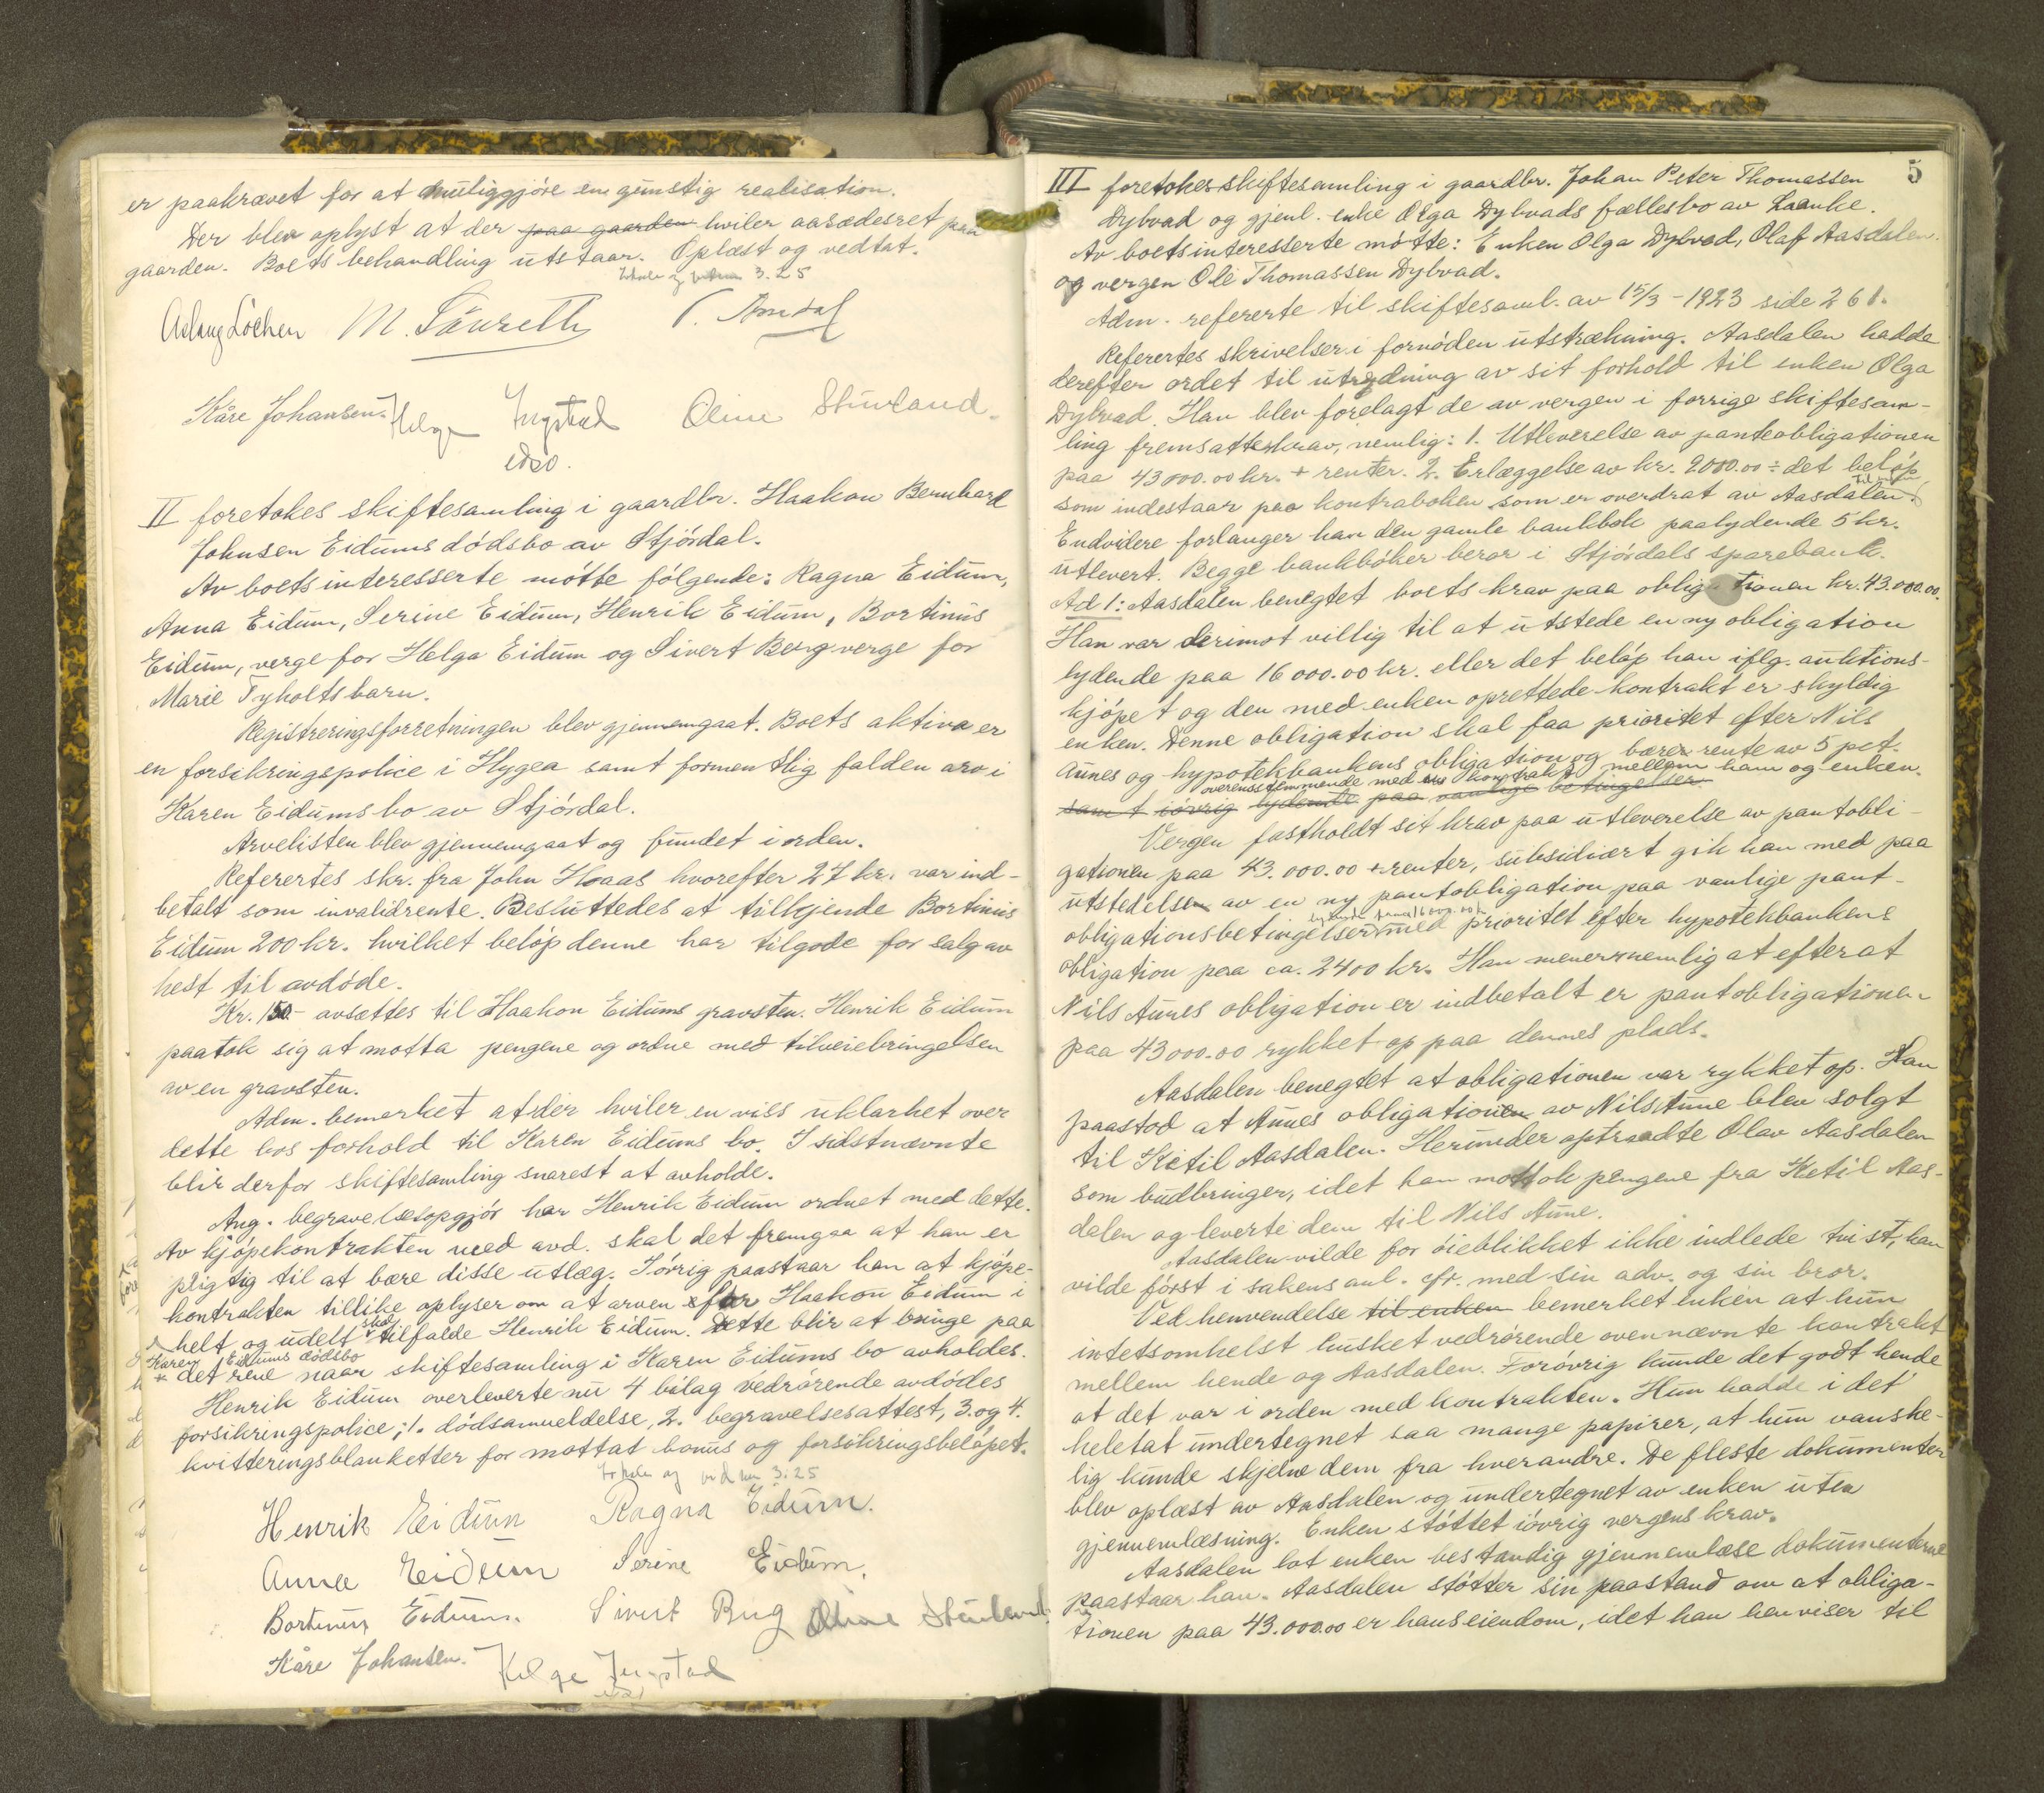 er paakrævet for at muliggjøre en gunstig realisation.
Der blev oplyst at der paa gaarden hviler aasædesret paa
gaarden. Boets behandling utstaar. Oplæst og vedtat.
3.25
Aslaug Löchen M. Saureth
Kåre Johansen. Helge Ingstad Oline Stuvland.
edso.
II foretokes skiftesamling i gaardbr. Haakon Bernhard
Johnsen Eidums dødsbo av Stjørdal.
Av boets interesserte møtte følgende: Ragna Eidum,
Anna Eidum, Serine Eidum, Henrik Eidum, Bortinus
Eidum, verge for Helga Eidum og Sivert Berg verge for
Marie Tyholtsbarn.
Registreringsforretningen blev gjennemgaat. Boets aktiva er
en forsikringspolice i Hygea samt formentlig falden arv i
Karen Eidums bo av Stjørdal.
Arvelisten blev gjennemgaat og fundet i orden.
Referertes skr. fra John Haas hvorefter 27 kr. var ind-
betalt som invalidrente. Besluttedes at tilkjende Bortinus
Eidum 200 kr. hvilket beløp denne har tilgode for salg av
hest til avdøde.
Kr. 150.- avsættes til Haakon Eidums gravsten. Henrik Eidum
paatok sig at motta pengene og ordne med tilveiebringelsen
av en gravsten.
Adm. bemerket at der hviler en viss uklarhet over
dette bos forhold til Karen Eidums bo. I sidstnævnte
blir derfor skiftesamling snarest at avholde.
Ang. begravelsesopgjør har Henrik Eidum ordnet med dette.
Av kjøpekontrakten med avd. skal det fremgaa at han er
pligtig til at bære disse utlæg. Iøvrig paastaar han at kjøpe-
kontrakten tillike oplyser om at arven efter Haakon Eidum i
helt og udelt skal tilfalde Henrik Eidum. Dette blir at bringe paa
Karen Eidums dødsbo
* det rene naar skiftesamling i Karen Eidums bo avholdes.
Henrik Eidum overleverte nu 4 bilag vedrørende avdødes
forsikringspolice; 1. dødsanmeldelse, 2. begravelsesattest, 3. og 4.
kvitteringsblanketter for mottat bonus og forsikringsbeløpet.
3.25
Henrik Eidum Ragna Eidum.
Anna Eidum Serine Eidum.
Bortinus Eidum. Sivert Berg Oline Stuvland.
Kåre Johansen. Helge Ingstad
5
III foretokes skiftesamling i gaardbr. Johan Peter Thomassen
Dybvad og gjenl. enke Olga Dybvads fællesbo av Laanke.
Av boets interesserte møtte: Enken Olga Dybvad, Olaf Aasdalen
og vergen Ole Thomassen Dybvad.
Adm. refererte til skiftesaml. av 15/3 - 1923 side 261.
Referertes skrivelser i fornøden utstrækning. Aasdalen hadde
derefter ordet til utredning av sit forhold til enken Olga
Dybvad. Han blev forelagt de av vergen i forrige skiftesam-
ling fremsatte krav, nemlig: 1. Utleverelse av panteobligationen
paa 43000.00 kr. + renter. 2. Erlæggelse av kr. 2000.00 ÷ det beløp
som indestaar paa kontraboken som er overdrat av Aasdalen.
Endvidere forlanger han den gamle bankbok paalydende 5 kr.
utlevert. Begge bankbøker beror i Stjørdals sparebank.
Ad 1: Aasdalen benegtet boets krav paa obligationen kr. 43.000.00.
Han var derimot villig til at utstede en ny obligation
lydende paa 16000.00 kr. eller det beløp han iflg. auktions-
kjøpet og den med enken oprettede kontrakt er skyldig
enken. Denne obligation skal faa prioritet efter Nils
Aunes og hypotekbankens obligation og bærer rente av 5 pct.
overensstemmende med kontrakt mellem ham og enken.
samt iøvrig lydende paa vanlige betingelser.
Vergen fastholdt sit krav paa utleverelse av pantobli-
gationen paa 43.000.00 + renter, subsidiært gik han med paa
utstedelsen av en ny pantobligation paa vanlige pant-
obligationsbetingelser med prioritet efter hypotekbankens
obligation paa ca. 2400 kr. Han mener nemlig at efter at
Nils Aunes obligation er indbetalt er pantobligationen
paa 43000.00 rykket op paa dennes plads.
Aasdalen benegtet at obligationen var rykket op. Han
paastod at Aunes obligationen av Nils Aune blev solgt
til Ketil Aasdalen. Herunder optraadte Olav Aasdalen
som budbringer, idet han mottok pengene fra Ketil Aas-
dalen og leverte dem til Nils Aune.
Aasdalen vilde for øieblikket ikke indlede tvist, han
vilde først i sakens anl. cfr. med sin adv. og sin bror.
Ved henvendelse til enken bemerket enken at hun
intetsomhelst husket vedrørende ovennævnte kontrakt
mellem hende og Aasdalen. Forøvrig kunde det godt hende
at det var i orden med kontrakten. Hun hadde i det
heletat undertegnet saa mange papirer, at hun vanske-
lig kunde skjelne dem fra hverandre. De fleste dokumenter
blev oplæst av Aasdalen og undertegnet av enken uten
gjennemlæsning. Enken støttet iøvrig vergens krav.
Aasdalen lot enken bestandig gjennemlæse dokumenterne
paastaar han. Aasdalen støtter sin paastand om at obliga-
tionen paa 43.000.00 er hans eiendom, idet han henviser til